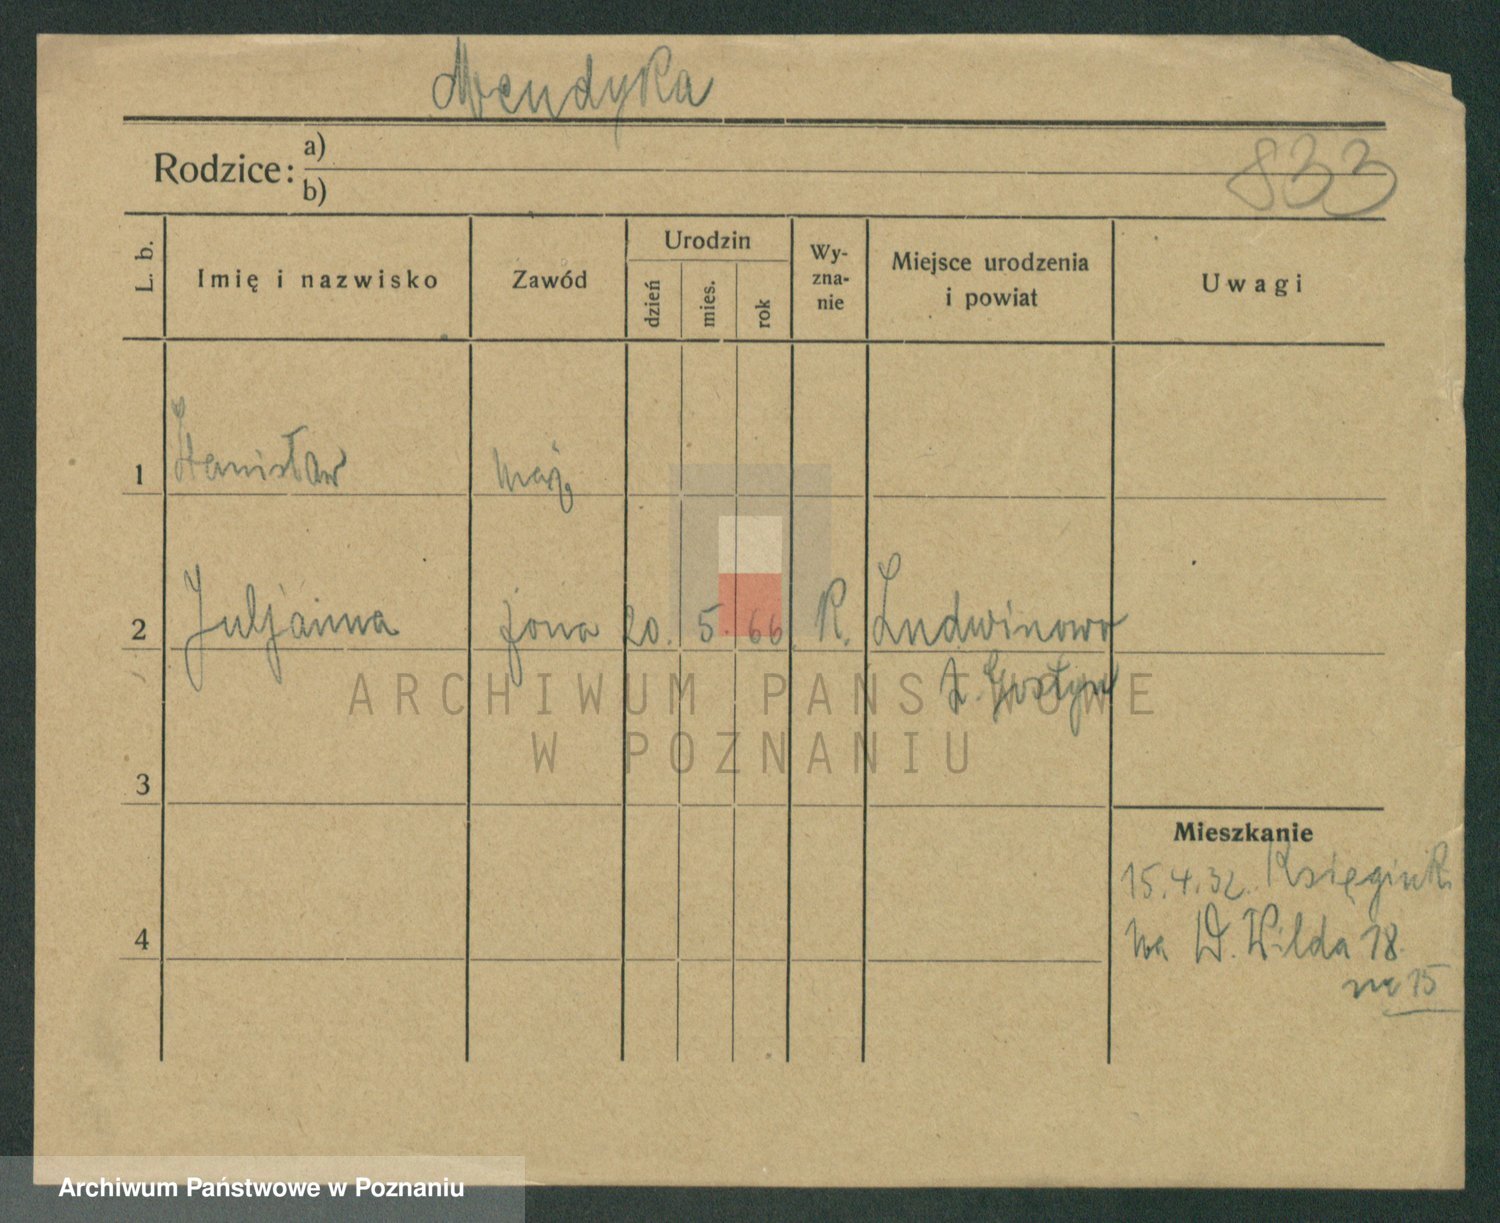 Mendyka
Rodzice: a)
b)
833
L. b.
Imię i nazwisko
Zawód
Urodzin
dzień
mies.
rok
Wy-
zna-
nie
Miejsce urodzenia
i powiat
Uwagi
1 Stanisław mąż
2 Juljanna żona 20. 5. 66 R. Ludwinowo
p. Gostyń
ARCHIWUM PAŃSTWOWE
W POZNANIU
3
Mieszkanie
15.4.32. Księginki
4
na D. Wilda 18.
m 15
Archiwum Państwowe w Poznaniu